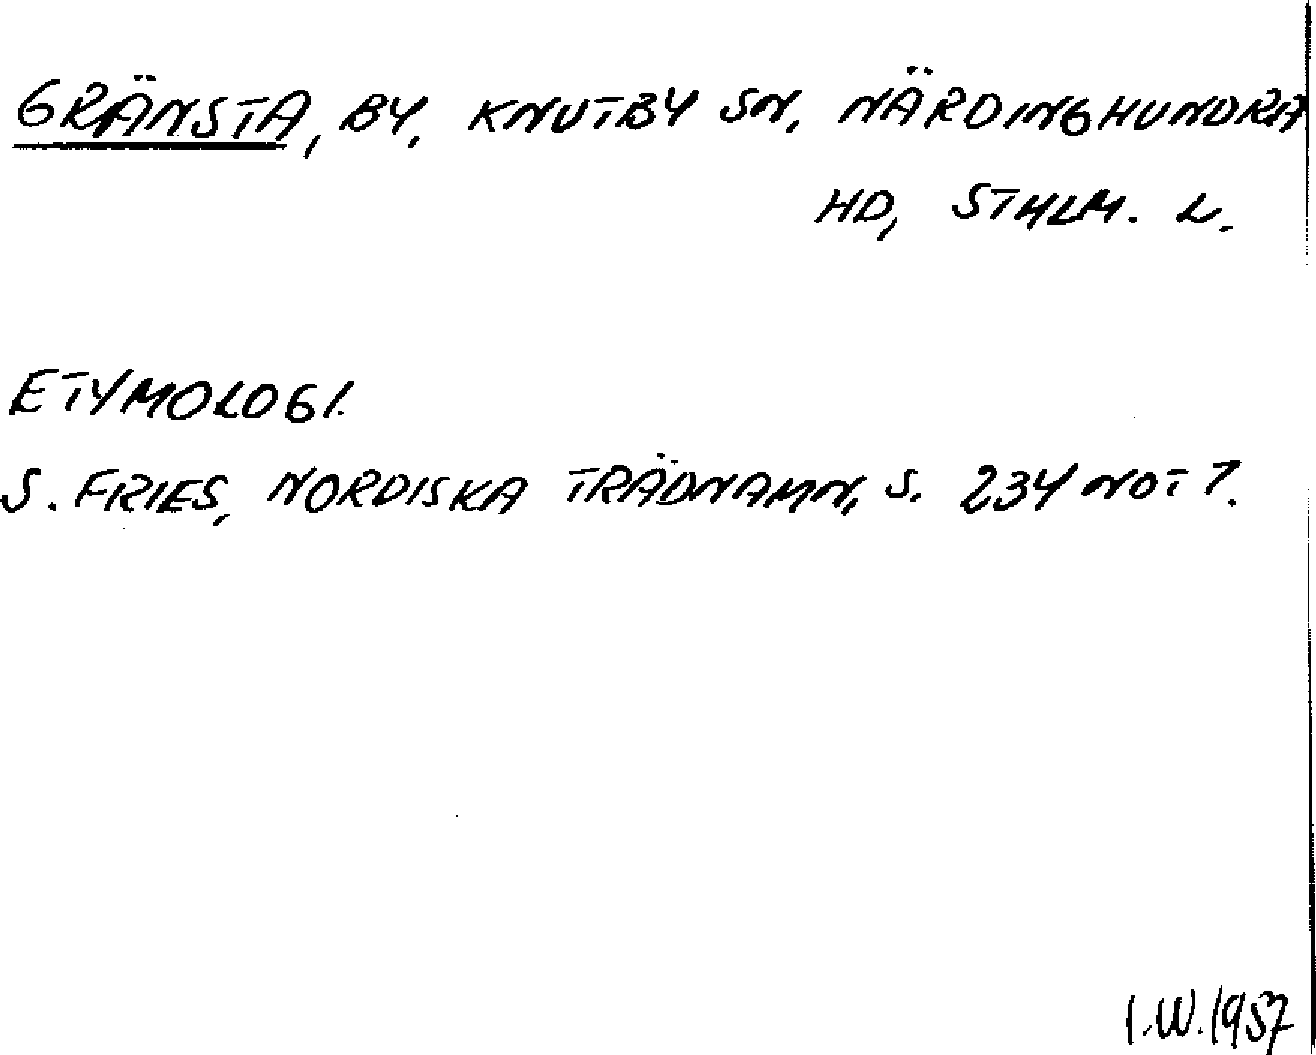 GRÄNSTA, BY, KNUTBY SN, NÄRDINGHUNDRA
HD, STHLM. L.
ETYMOLOGI.
S. FRIES, NORDISKA TRÄDNAMN, S. 234 NOT 7.
I.W. 1957